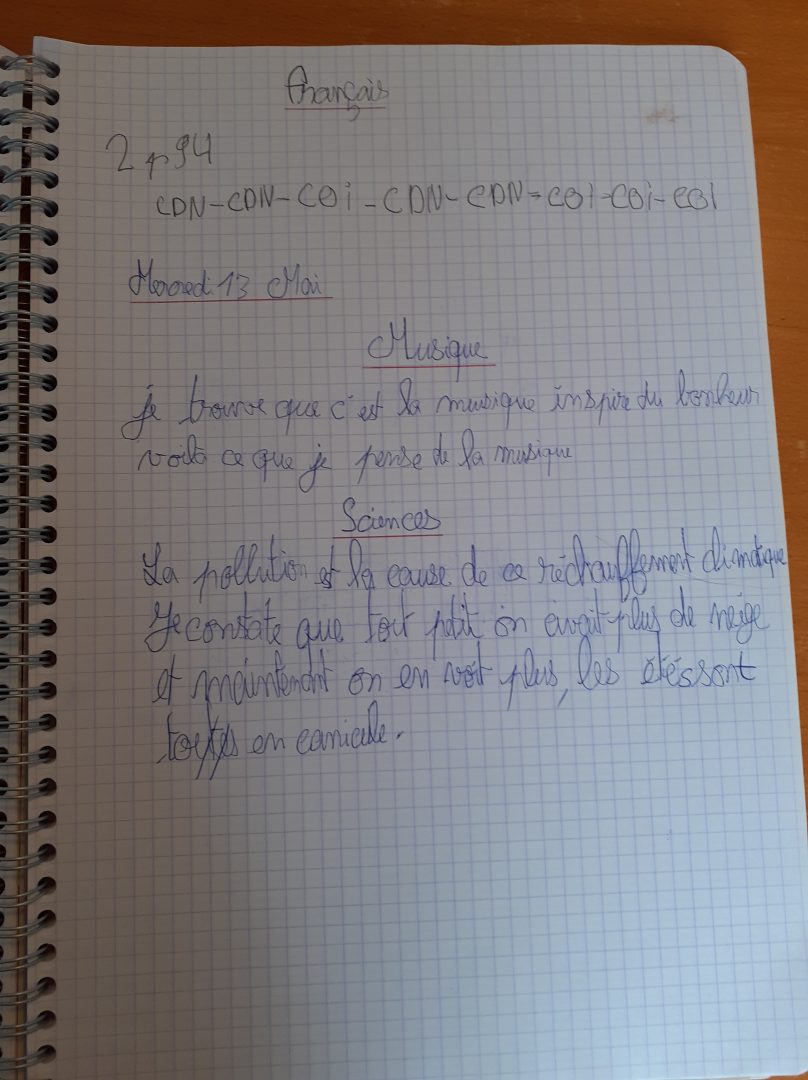 Français
2 p 94
CDN-CDN-COi-CDN-CDN-COI-COi-COI
Mercredi 13 Mai
Musique
je trouve que c'est la musique inspire du bonheur
voila ce que je pense de la musique
Sciences
La pollution et la cause de ce réchauffement climatique
Je constate que tout petit on avait plus de neige
et maintenant on en voit plus, les étés sont
en canicule.